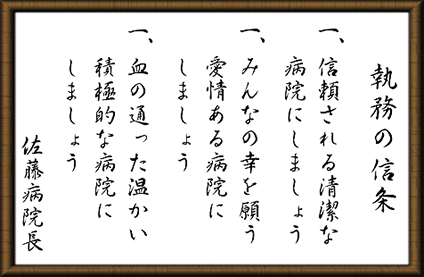 執務の信条
一、信頼される清潔な
病院にしましょう
一、みんなの幸を願う
愛情ある病院に
しましょう
一、血の通った温かい
積極的な病院に
しましょう
佐藤病院長